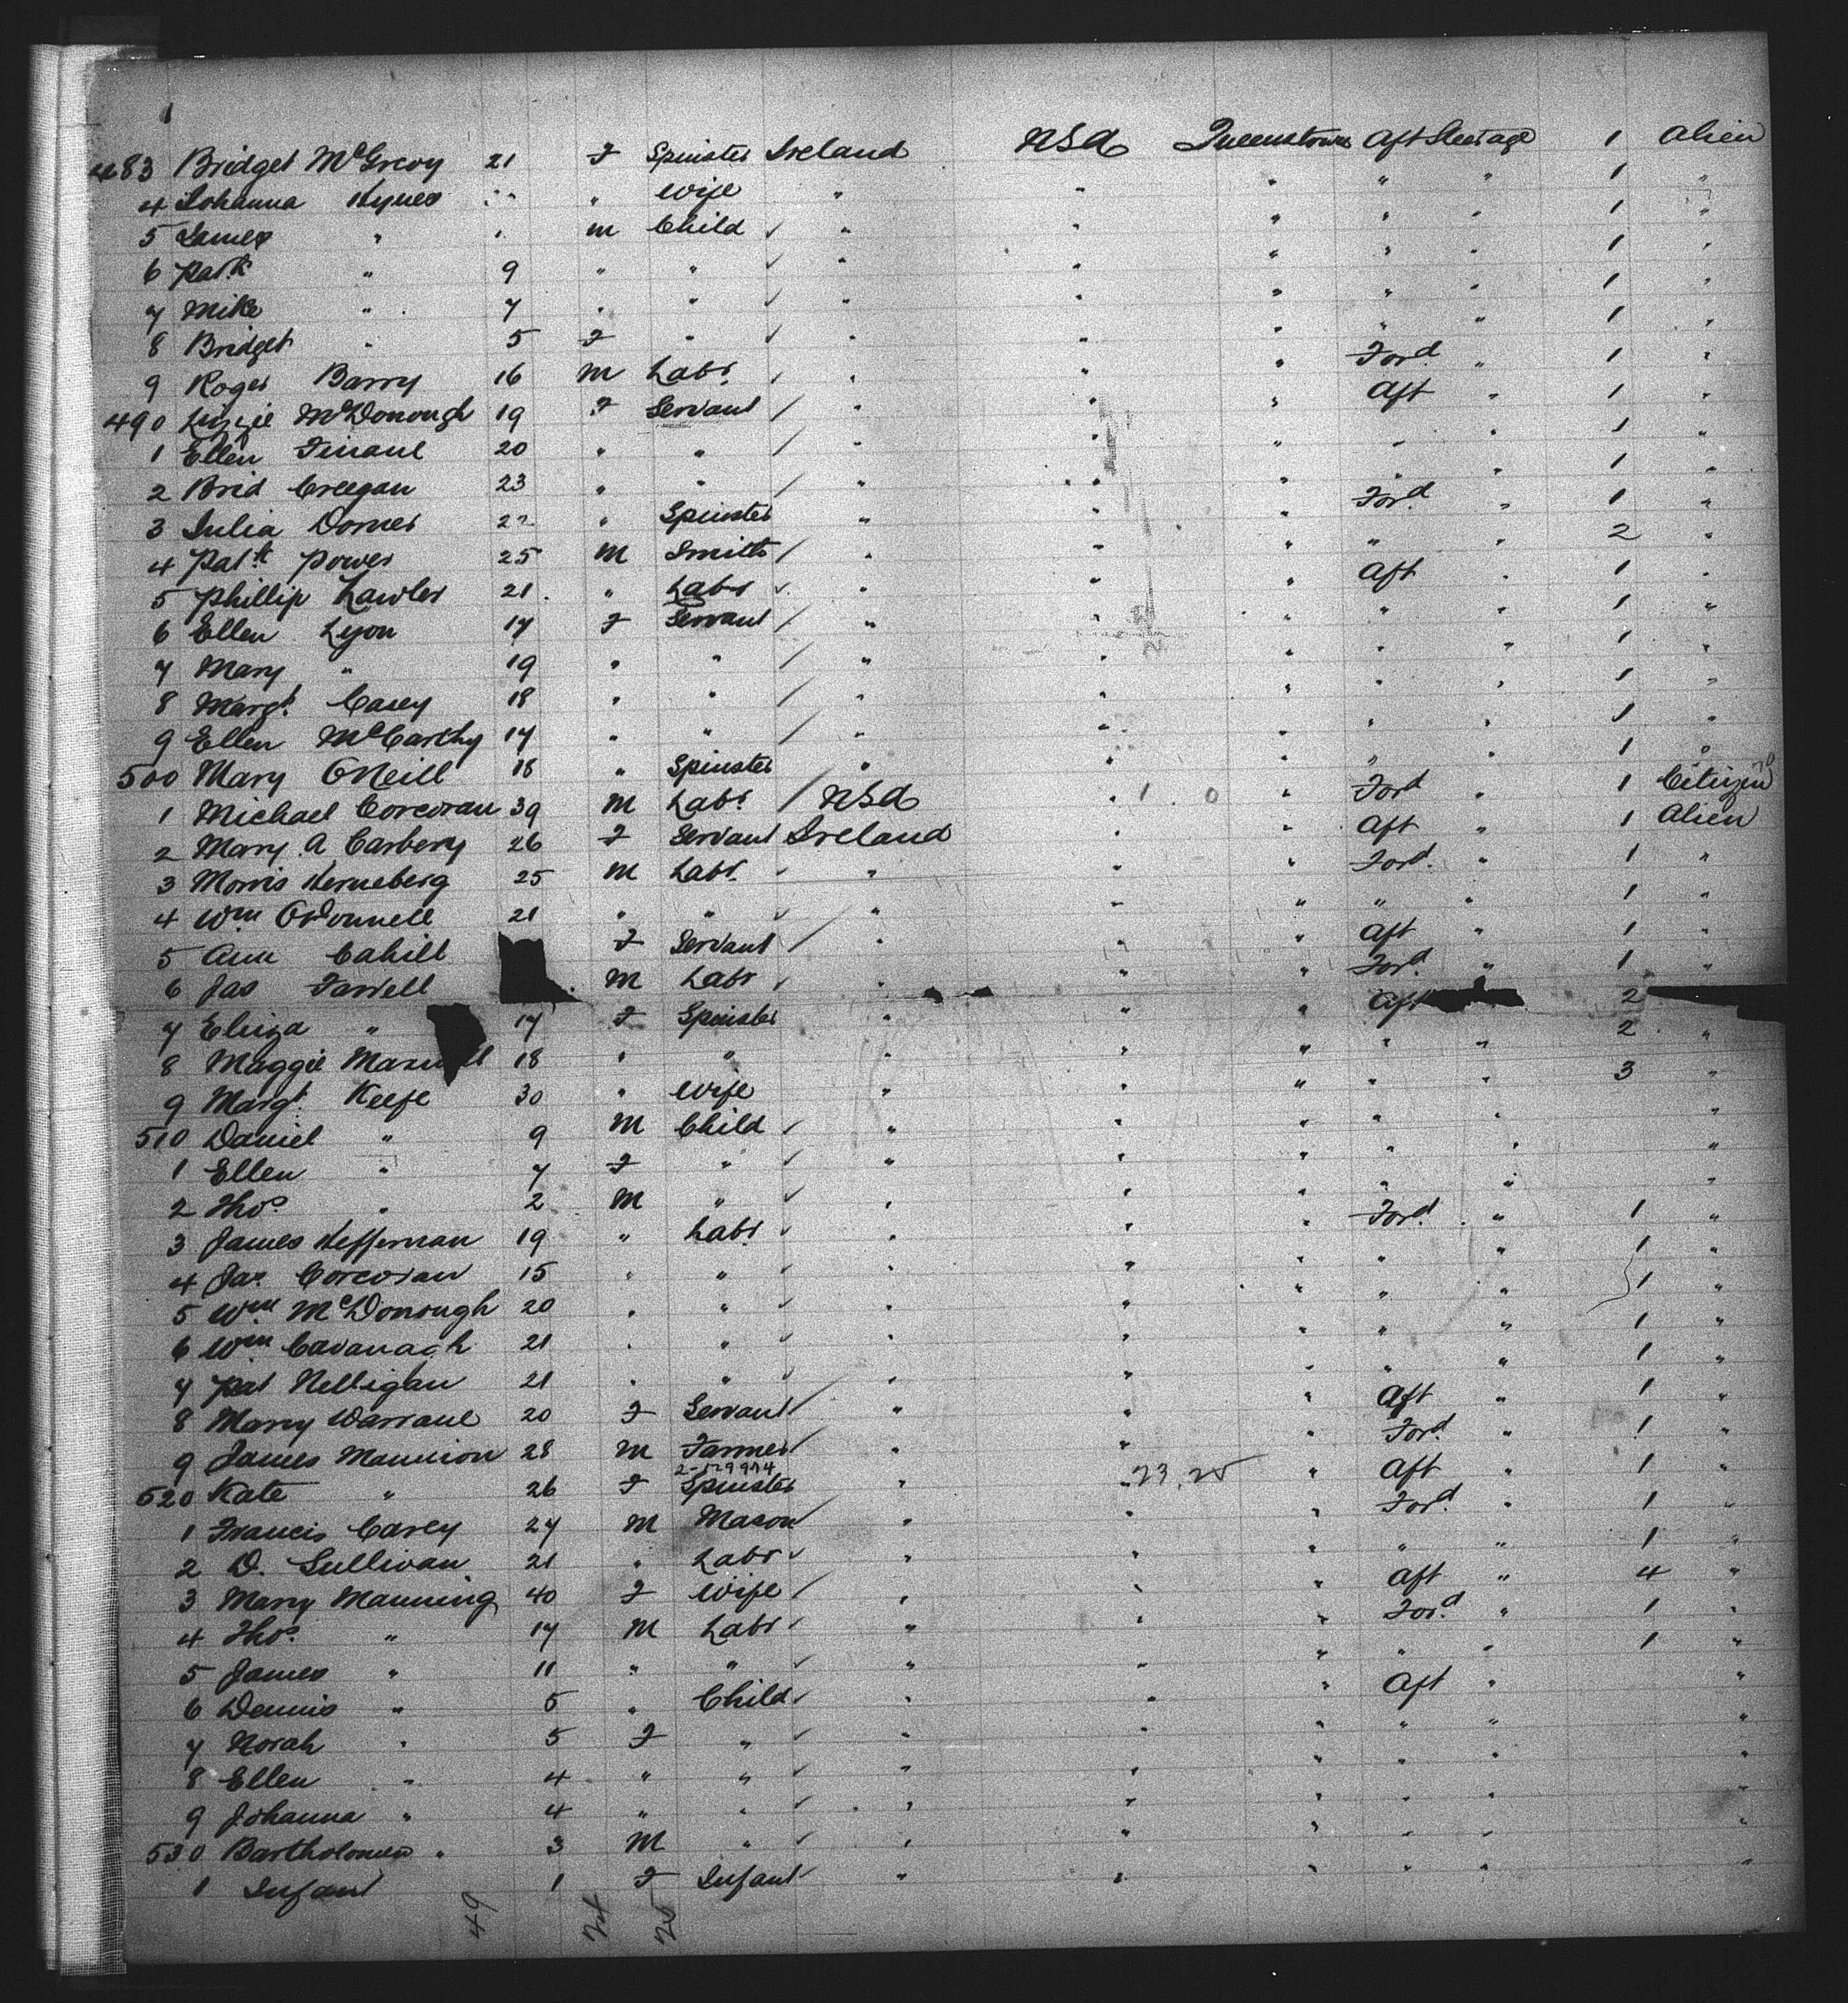 483 Bridget McGrevy 21 F Spinster Ireland USA Queenstown Aft Steerage 1 Alien
4 Johanna Hynes " Wife " " " " " 1 "
5 James " M Child " " " " " 1 "
6 Patk " 9 " " " " " " " 1 "
7 Mike " 7 " " " " " " " 1 "
8 Bridget " 5 F " " " " " " 1 "
9 Roger Barry 16 M Labr " " " Ford " 1 "
490 Lizzie McDonough 19 F Servant " " " Aft " 1 "
1 Ellen 20 " " " " " " " 1 "
2 Brid Creegan 23 " " " " " " " 1 "
3 Julia 22 " Spinster " " " Ford " 1 "
4 Patk Power 25 M Smith " " " " " 2 "
5 Phillip Lawler 21 " Labr " " " Aft " 1 "
6 Ellen Lyon 17 F Servant " " " " " 1 "
7 Mary " 19 " " " " " " " 1 "
8 Margt Casey 18 " " " " " " " 1 "
9 Ellen McCarthy 17 " " " " " " " 1 "
500 Mary O'Neill 18 " Spinster " " " " " 1 "
1 Michael Corcoran 39 M Labr USA " 1 0 " Ford " 1 Citizen
2 Mary A Carbery 26 F Servant Ireland " " Aft " 1 Alien
3 Morris Herneberg 25 M Labr " " " Ford " 1 "
4 Wm O'Donnell 21 " " " " " " " 1 "
5 Ann Cahill F Servant " " " Aft " 1 "
6 Jas Farrell M Labr " " " Ford " 1 "
7 Eliza " 17 F Spinster " " " Aft 2
8 Maggie 18 " " " " " " " 2 "
9 Margt Keefe 30 " Wife " " " " " 3 "
510 Daniel " 9 M Child " " " " " "
1 Ellen " 7 F " " " " " " "
2 Thos " 2 M " " " " " " "
3 James Heffernan 19 " Labr " " " Ford " 1 "
4 Jas Corcoran 15 " " " " " " " 1 "
5 Wm McDonough 20 " " " " " " " 1 "
6 Wm Cavanagh 21 " " " " " " " 1 "
7 Pat Nelligan 21 " " " " " " " 1 "
8 Mary 20 F Servant " " " Aft " 1 "
9 James Mannion 28 M Farmer " " " Ford " 1 "
520 Kate " 26 F Spinster " " 23.25 " Aft " 1 "
1 Francis Carey 27 M Mason " " " Ford " 1 "
2 D. Sullivan 21 " Labr " " " " " 1 "
3 Mary Manning 40 F Wife " " " Aft " 4 "
4 Thos " 17 M Labr " " " Ford " 1 "
5 James " 11 " " " " " " " 1 "
6 Dennis " 5 " Child " " " Aft " "
7 Norah " 5 F " " " " " " "
8 Ellen " 4 " " " " " " " "
9 Johanna " 4 " " " " " " " "
530 Bartholomew " 3 M " " " " " " "
1 Infant 1 F Infant " " " " " "
49 24 25